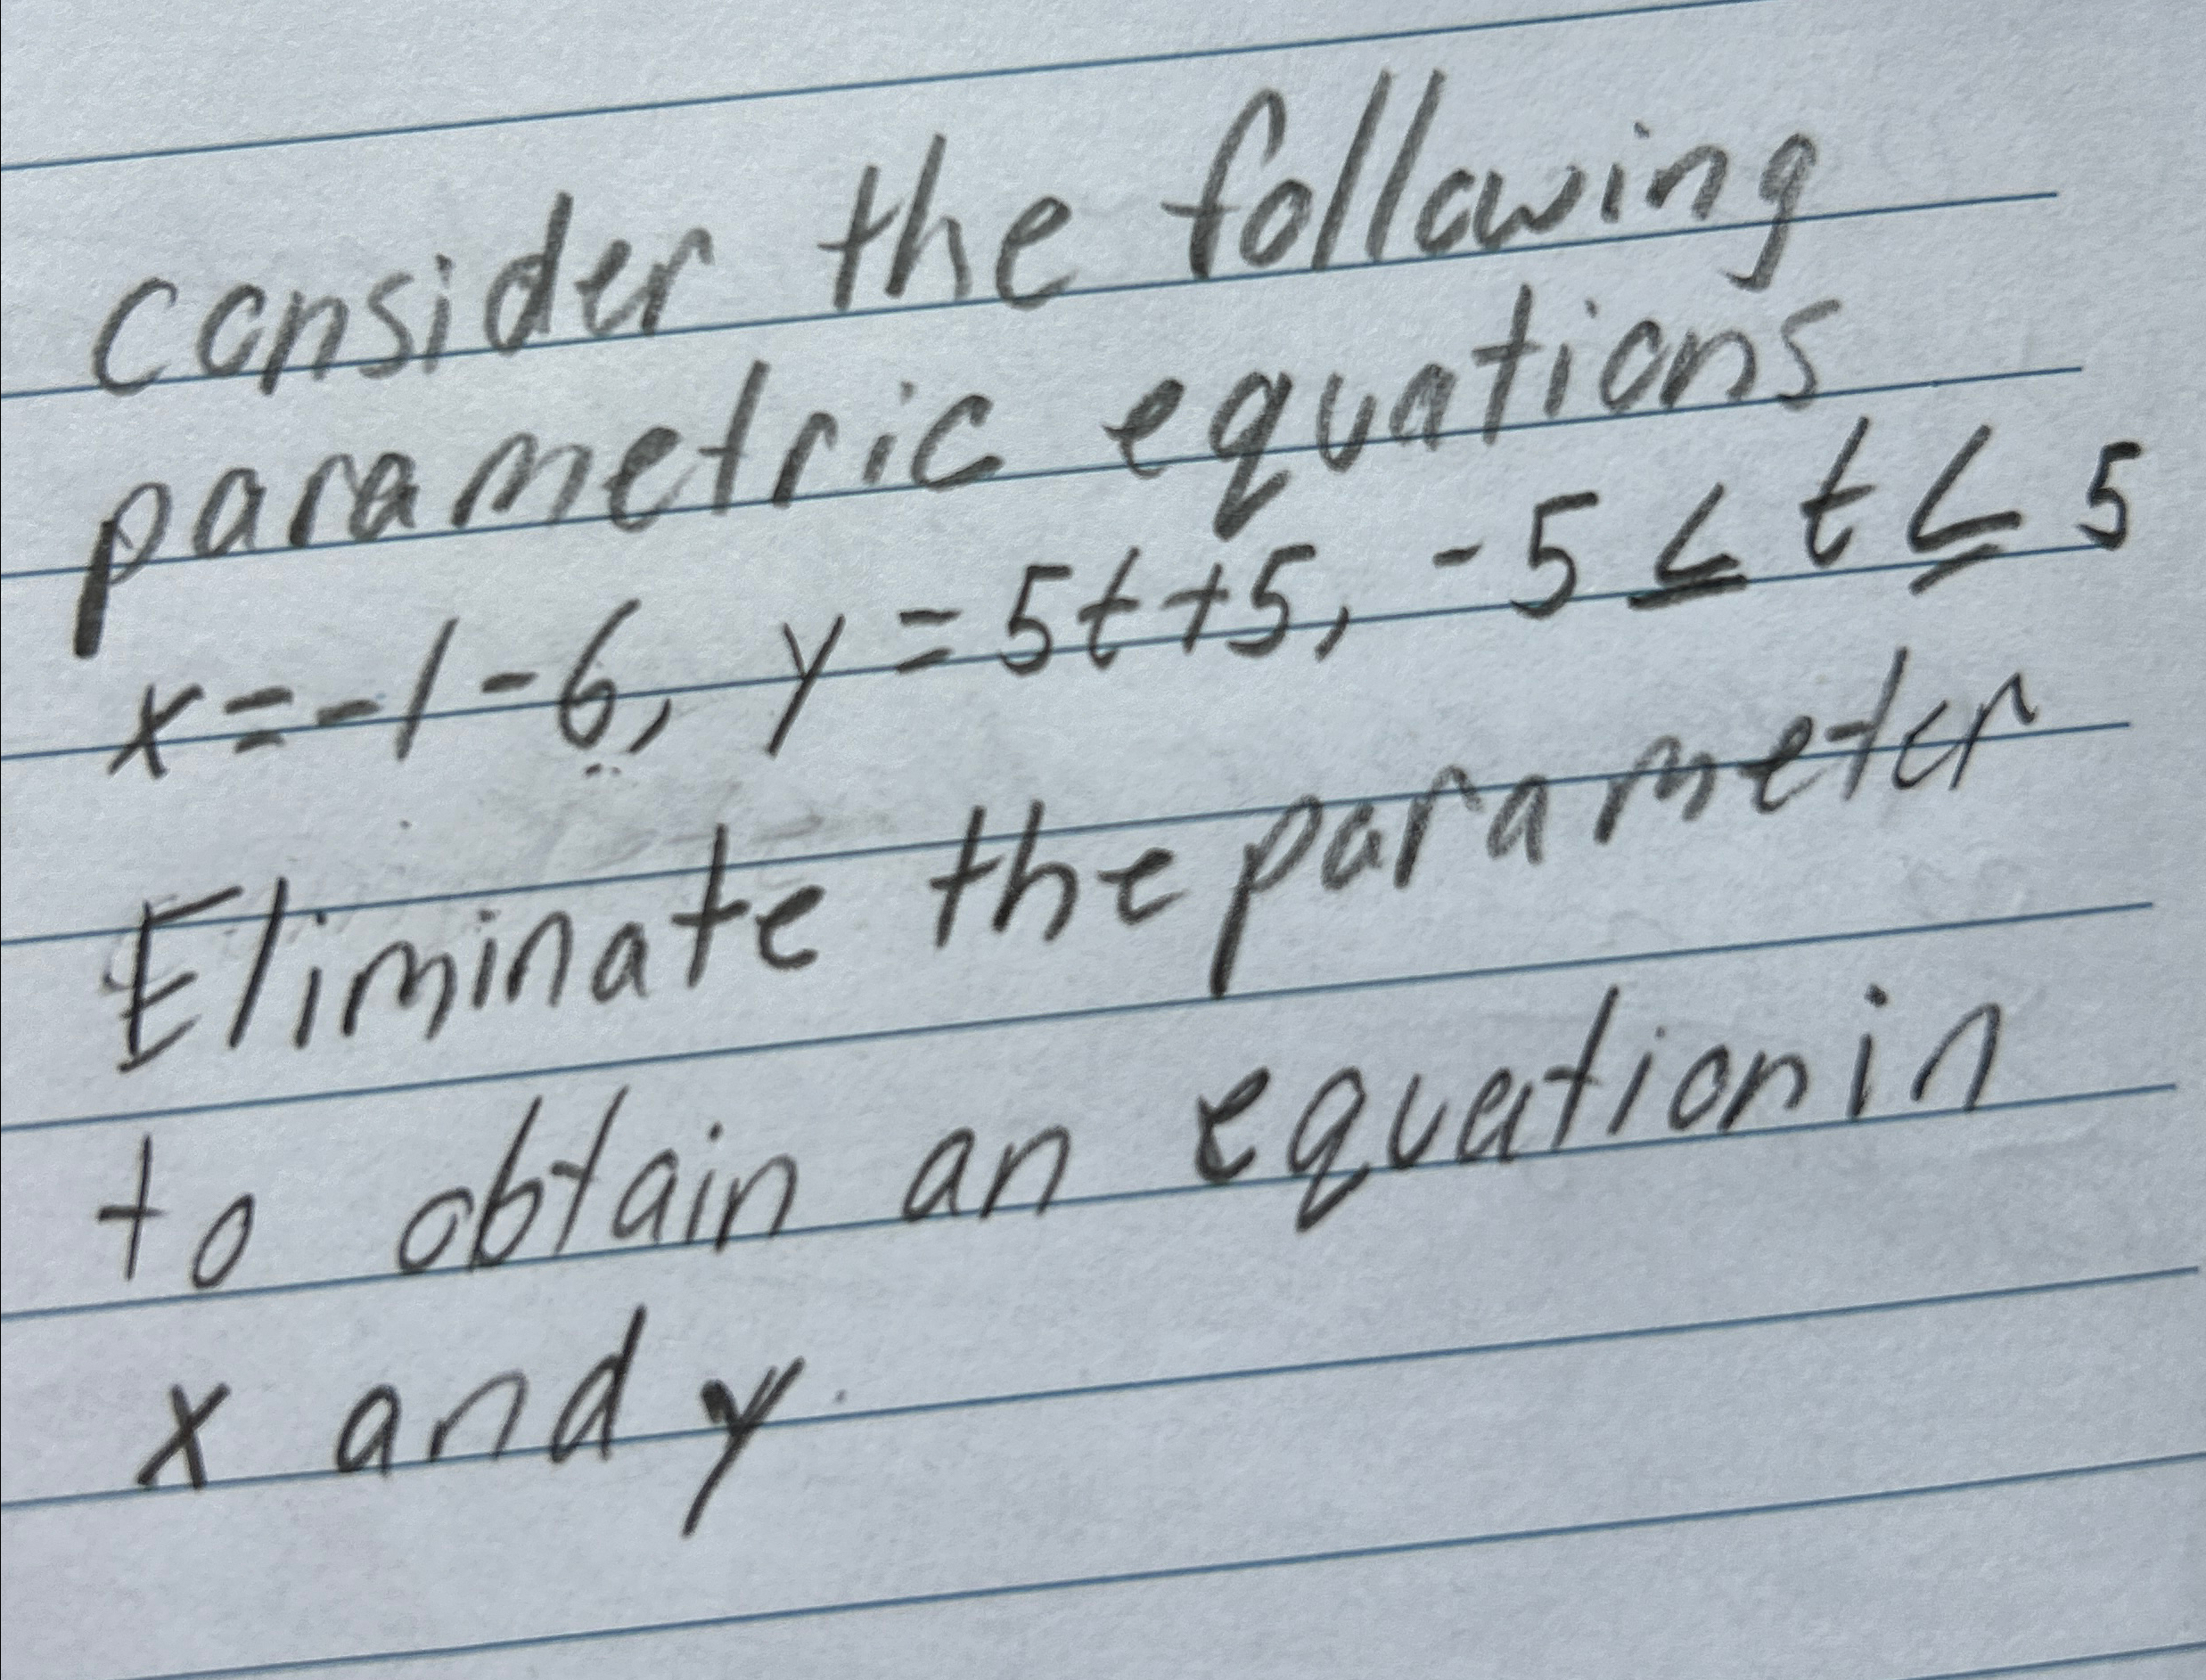 consider the following
parametric equations
x=-1-6, y=5t+5, -5≤t≤5
Eliminate the parameter
to obtain an equation in
x and y.